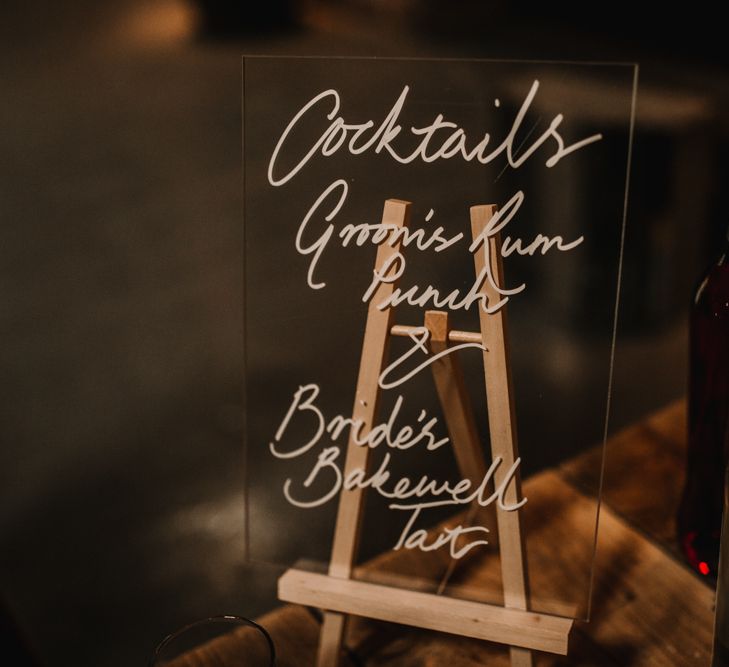 Cocktails
Groom's Rum
Punch
&
Bride's
Bakewell
Tart